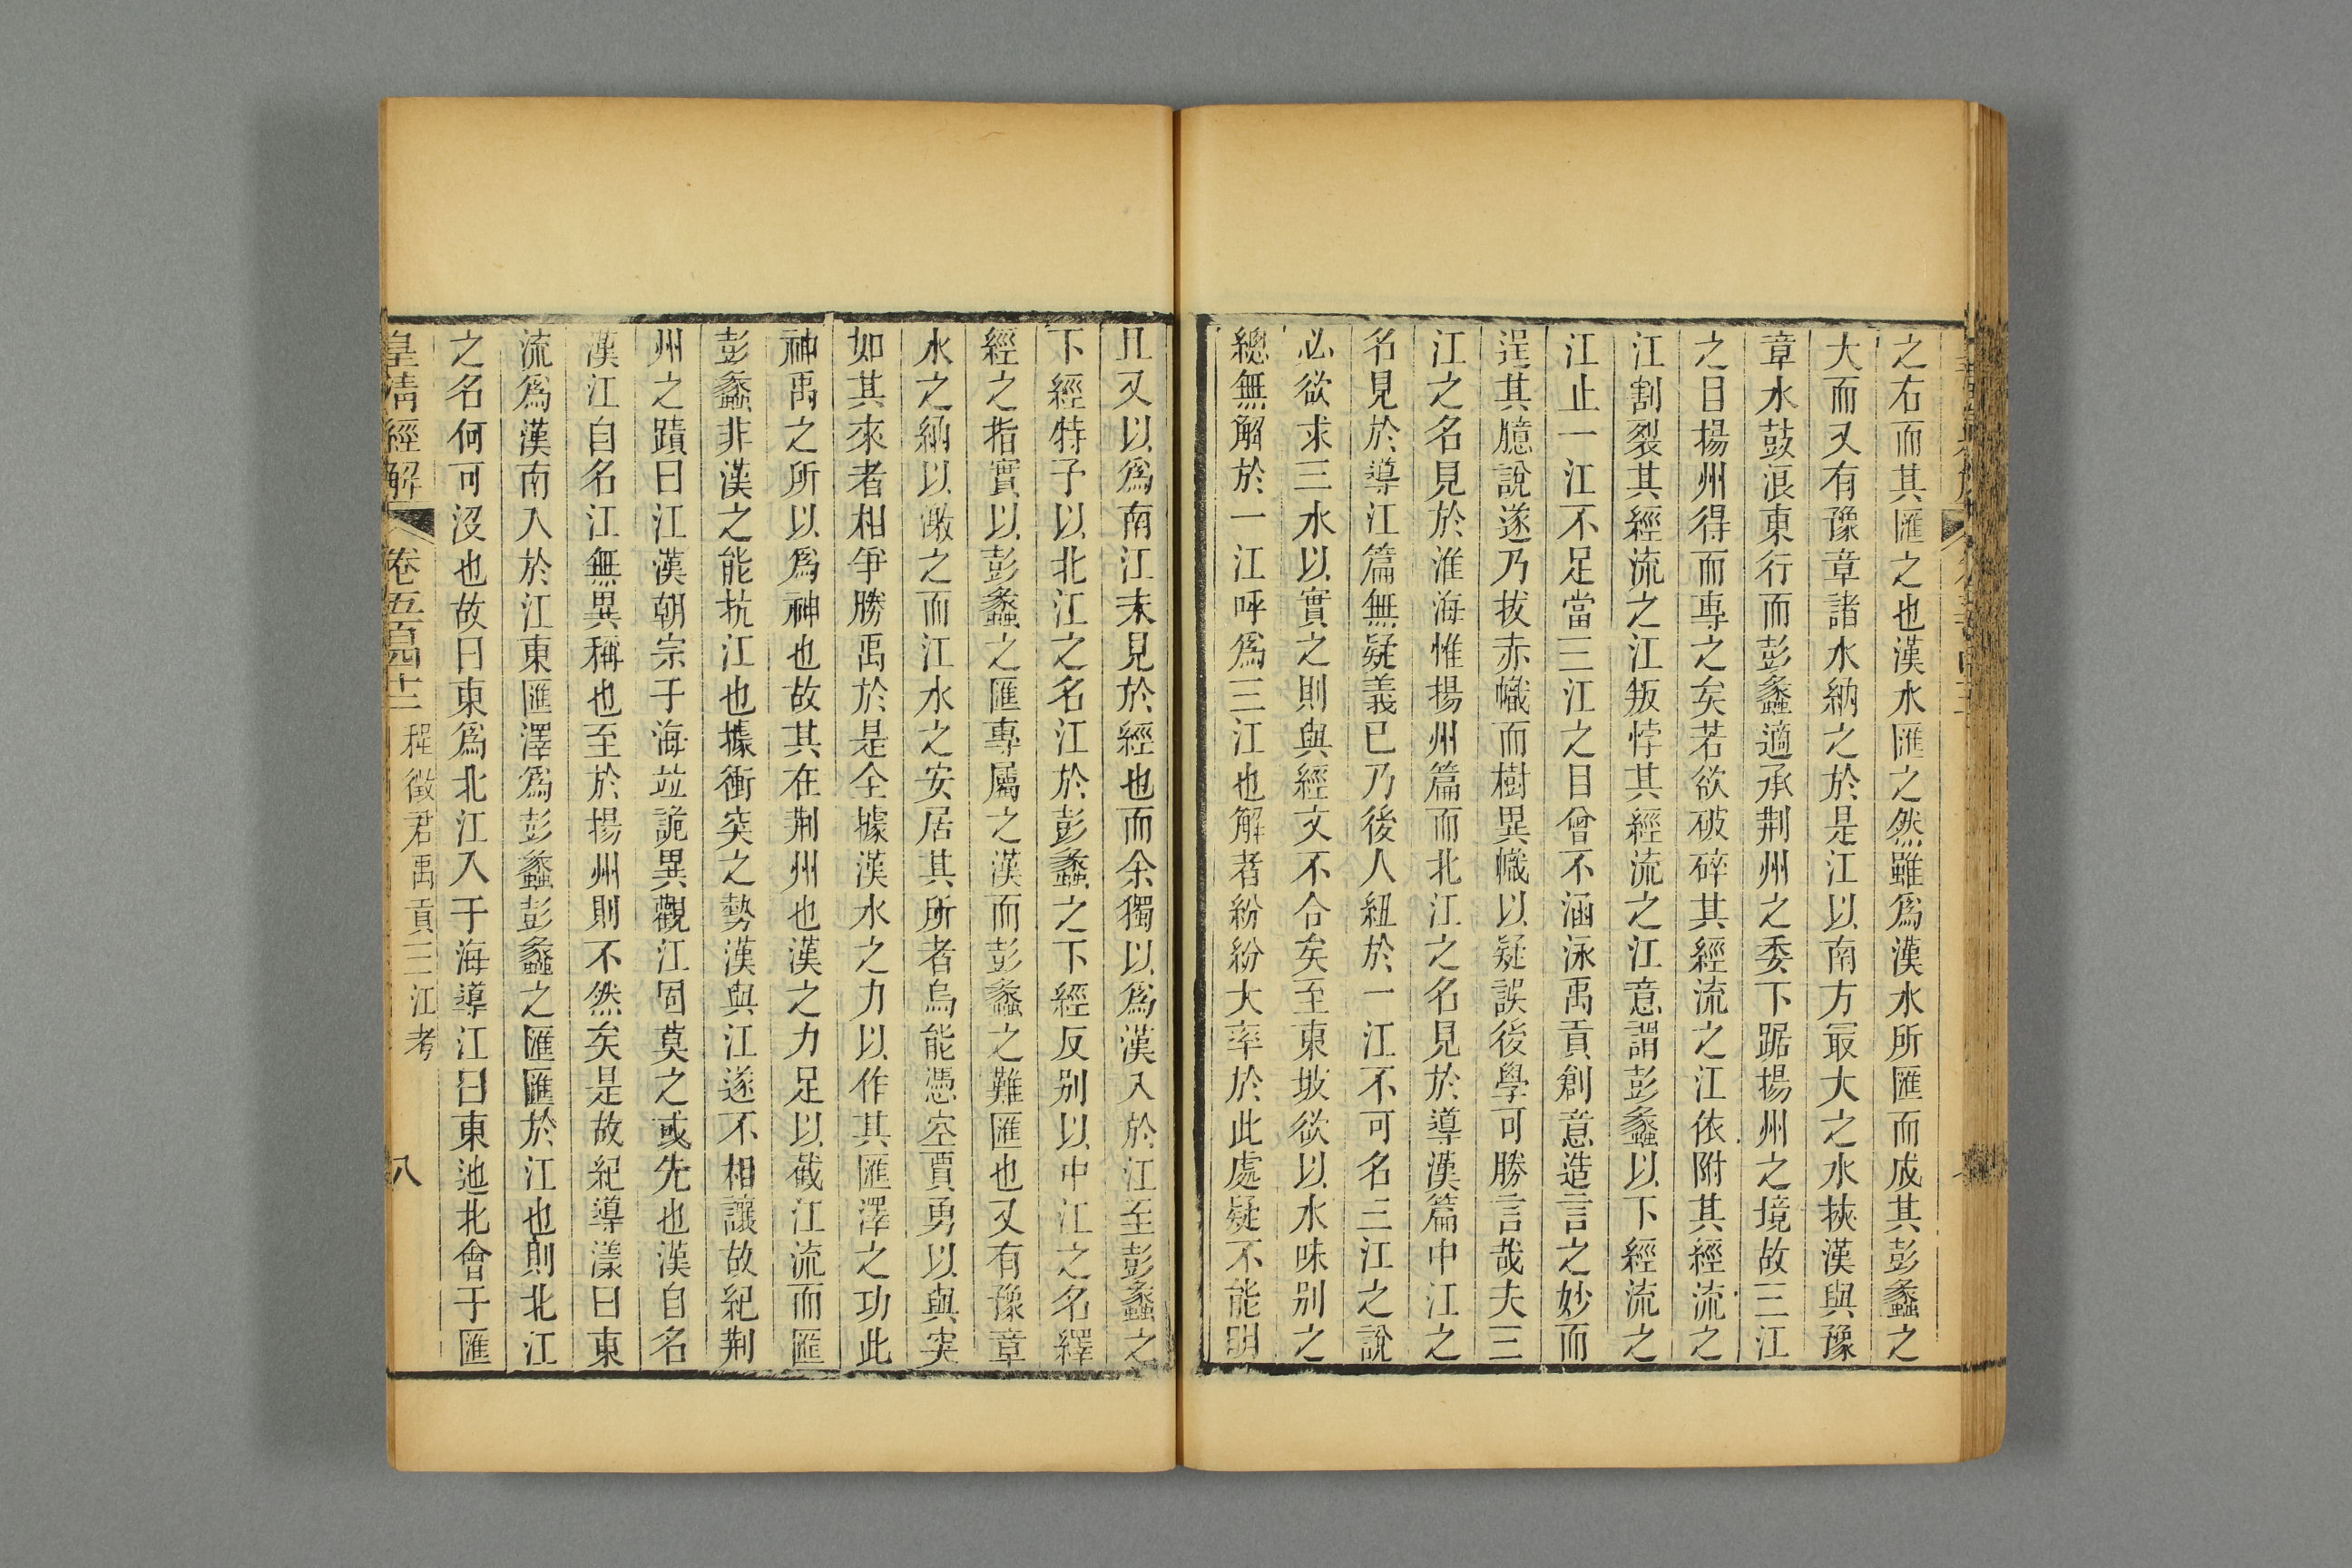 之右而其匯之也漢水匯之然雖爲漢水所匯而成其彭蠡之
大而又有豫章諸水納之於是江以南方最大之水挾漢與豫
章水鼓浪東行而彭蠡適承荆州之委下踞揚州之境故三江
之目揚州得而專之矣若欲破碎其經流之江依附其經流之
江割裂其經流之江叛悖其經流之江意謂彭蠡以下經流之
江止一江不足當三江之目曾不涵泳禹貢創意造言之妙而
逞其臆說遂乃拔赤幟而樹異幟以疑誤後學可勝言哉夫三
江之名見於淮海惟揚州篇而北江之名見於導漢篇中江之
名見於導江篇無疑義已乃後人紐於一江不可名三江之說
必欲求三水以實之則與經文不合矣至東坡欲以水味别之
總無解於一江呼爲三江也解者紛紛大率於此處疑不能明
且又以爲南江未見於經也而余獨以爲漢入於江至彭蠡之
下經特予以北江之名江於彭蠡之下經反别以中江之名繹
經之指實以彭蠡之匯專屬之漢而彭蠡之難匯也又有豫章
水之納以激之而江水之安居其所者烏能憑空賈勇以與突
如其來者相爭勝禹於是全據漢水之力以作其匯澤之功此
神禹之所以爲神也故其在荆州也漢之力足以截江流而匯
彭蠡非漢之能抗江也據衝突之勢漢與江遂不相讓故紀荆
州之蹟曰江漢朝宗于海竝詭異觀江固莫之或先也漢自名
漢江自名江無異稱也至於揚州則不然矣是故紀導漾曰東
流爲漢南入於江東匯澤爲彭蠡彭蠡之匯匯於江也則北江
之名何可沒也故曰東爲北江入于海導江曰東迆北會于匯
皇清經解 卷五百四十二 程徵君禹貢三江考 八